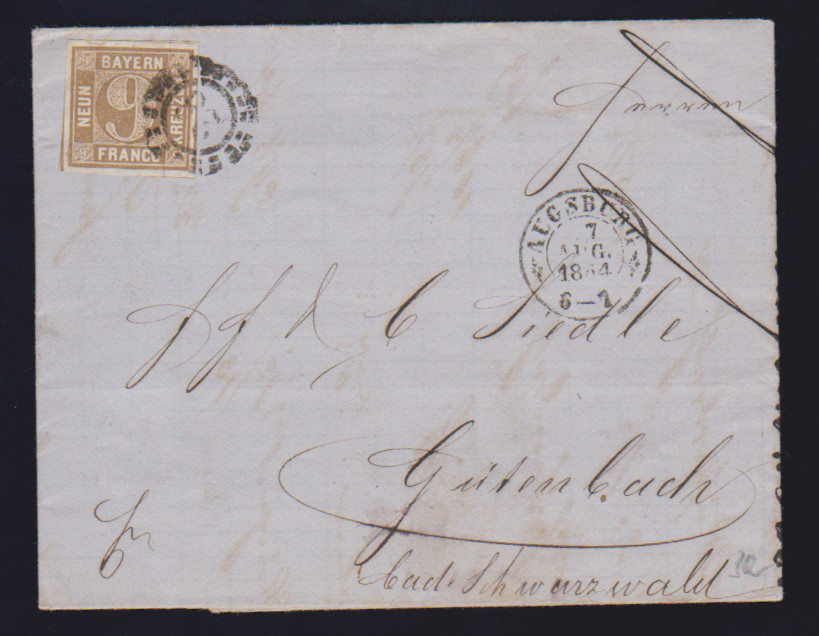 BAYERN
NEUN
9
KREUZER
FRANCO
Herren
AUGSBURG
7
AUG.
1864
6-7
Siedle
Gütenbach
bad. Schwarzwald
32